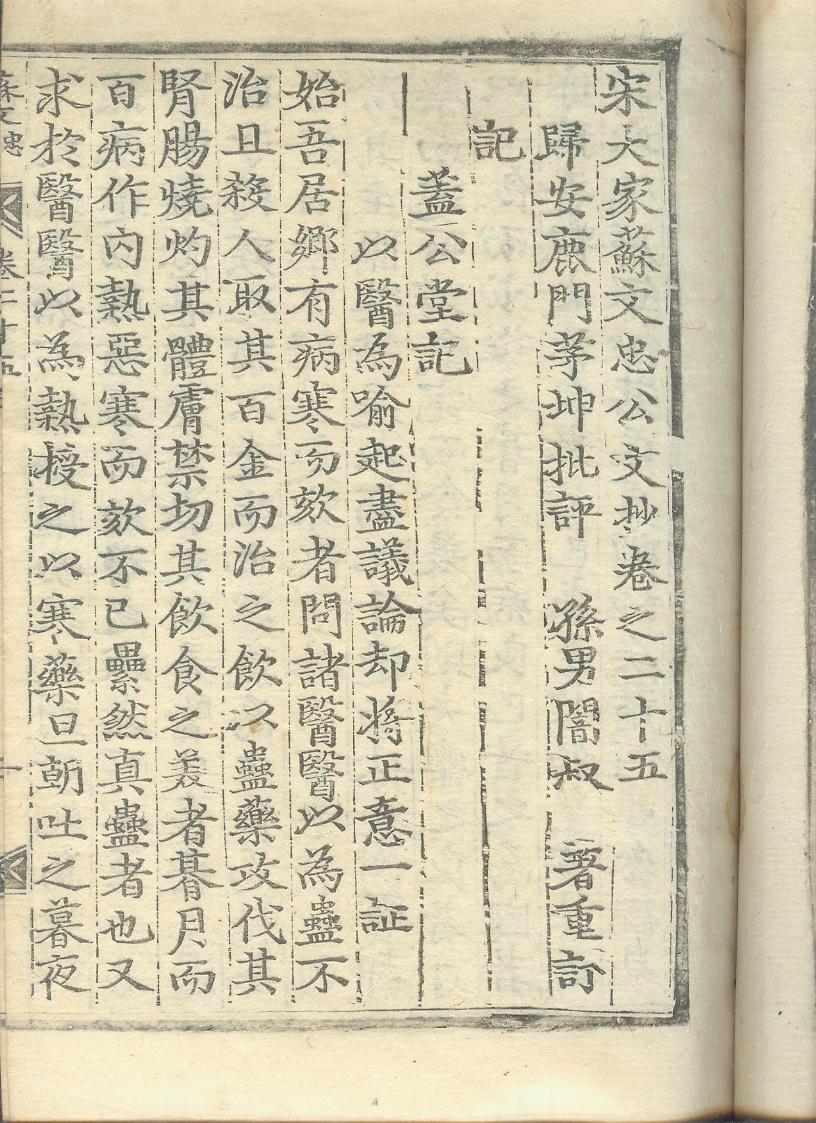 宋大家蘇文忠公文抄卷之二十五
歸安鹿門茅坤批評　孫男闇叔　著重訂
記
蓋公堂記
以醫為喻起盡議論却將正意一証
始吾居鄉有病寒而欬者問諸醫醫以為蠱不
治且殺人取其百金而治之飲以蠱藥攻伐其
腎腸燒灼其體膚禁切其飲食之美者朞月而
百病作內熱惡寒而欬不已纍然真蠱者也又
求於醫醫以為熱授之以寒藥旦朝吐之暮夜
蘇文忠　卷二十五　一